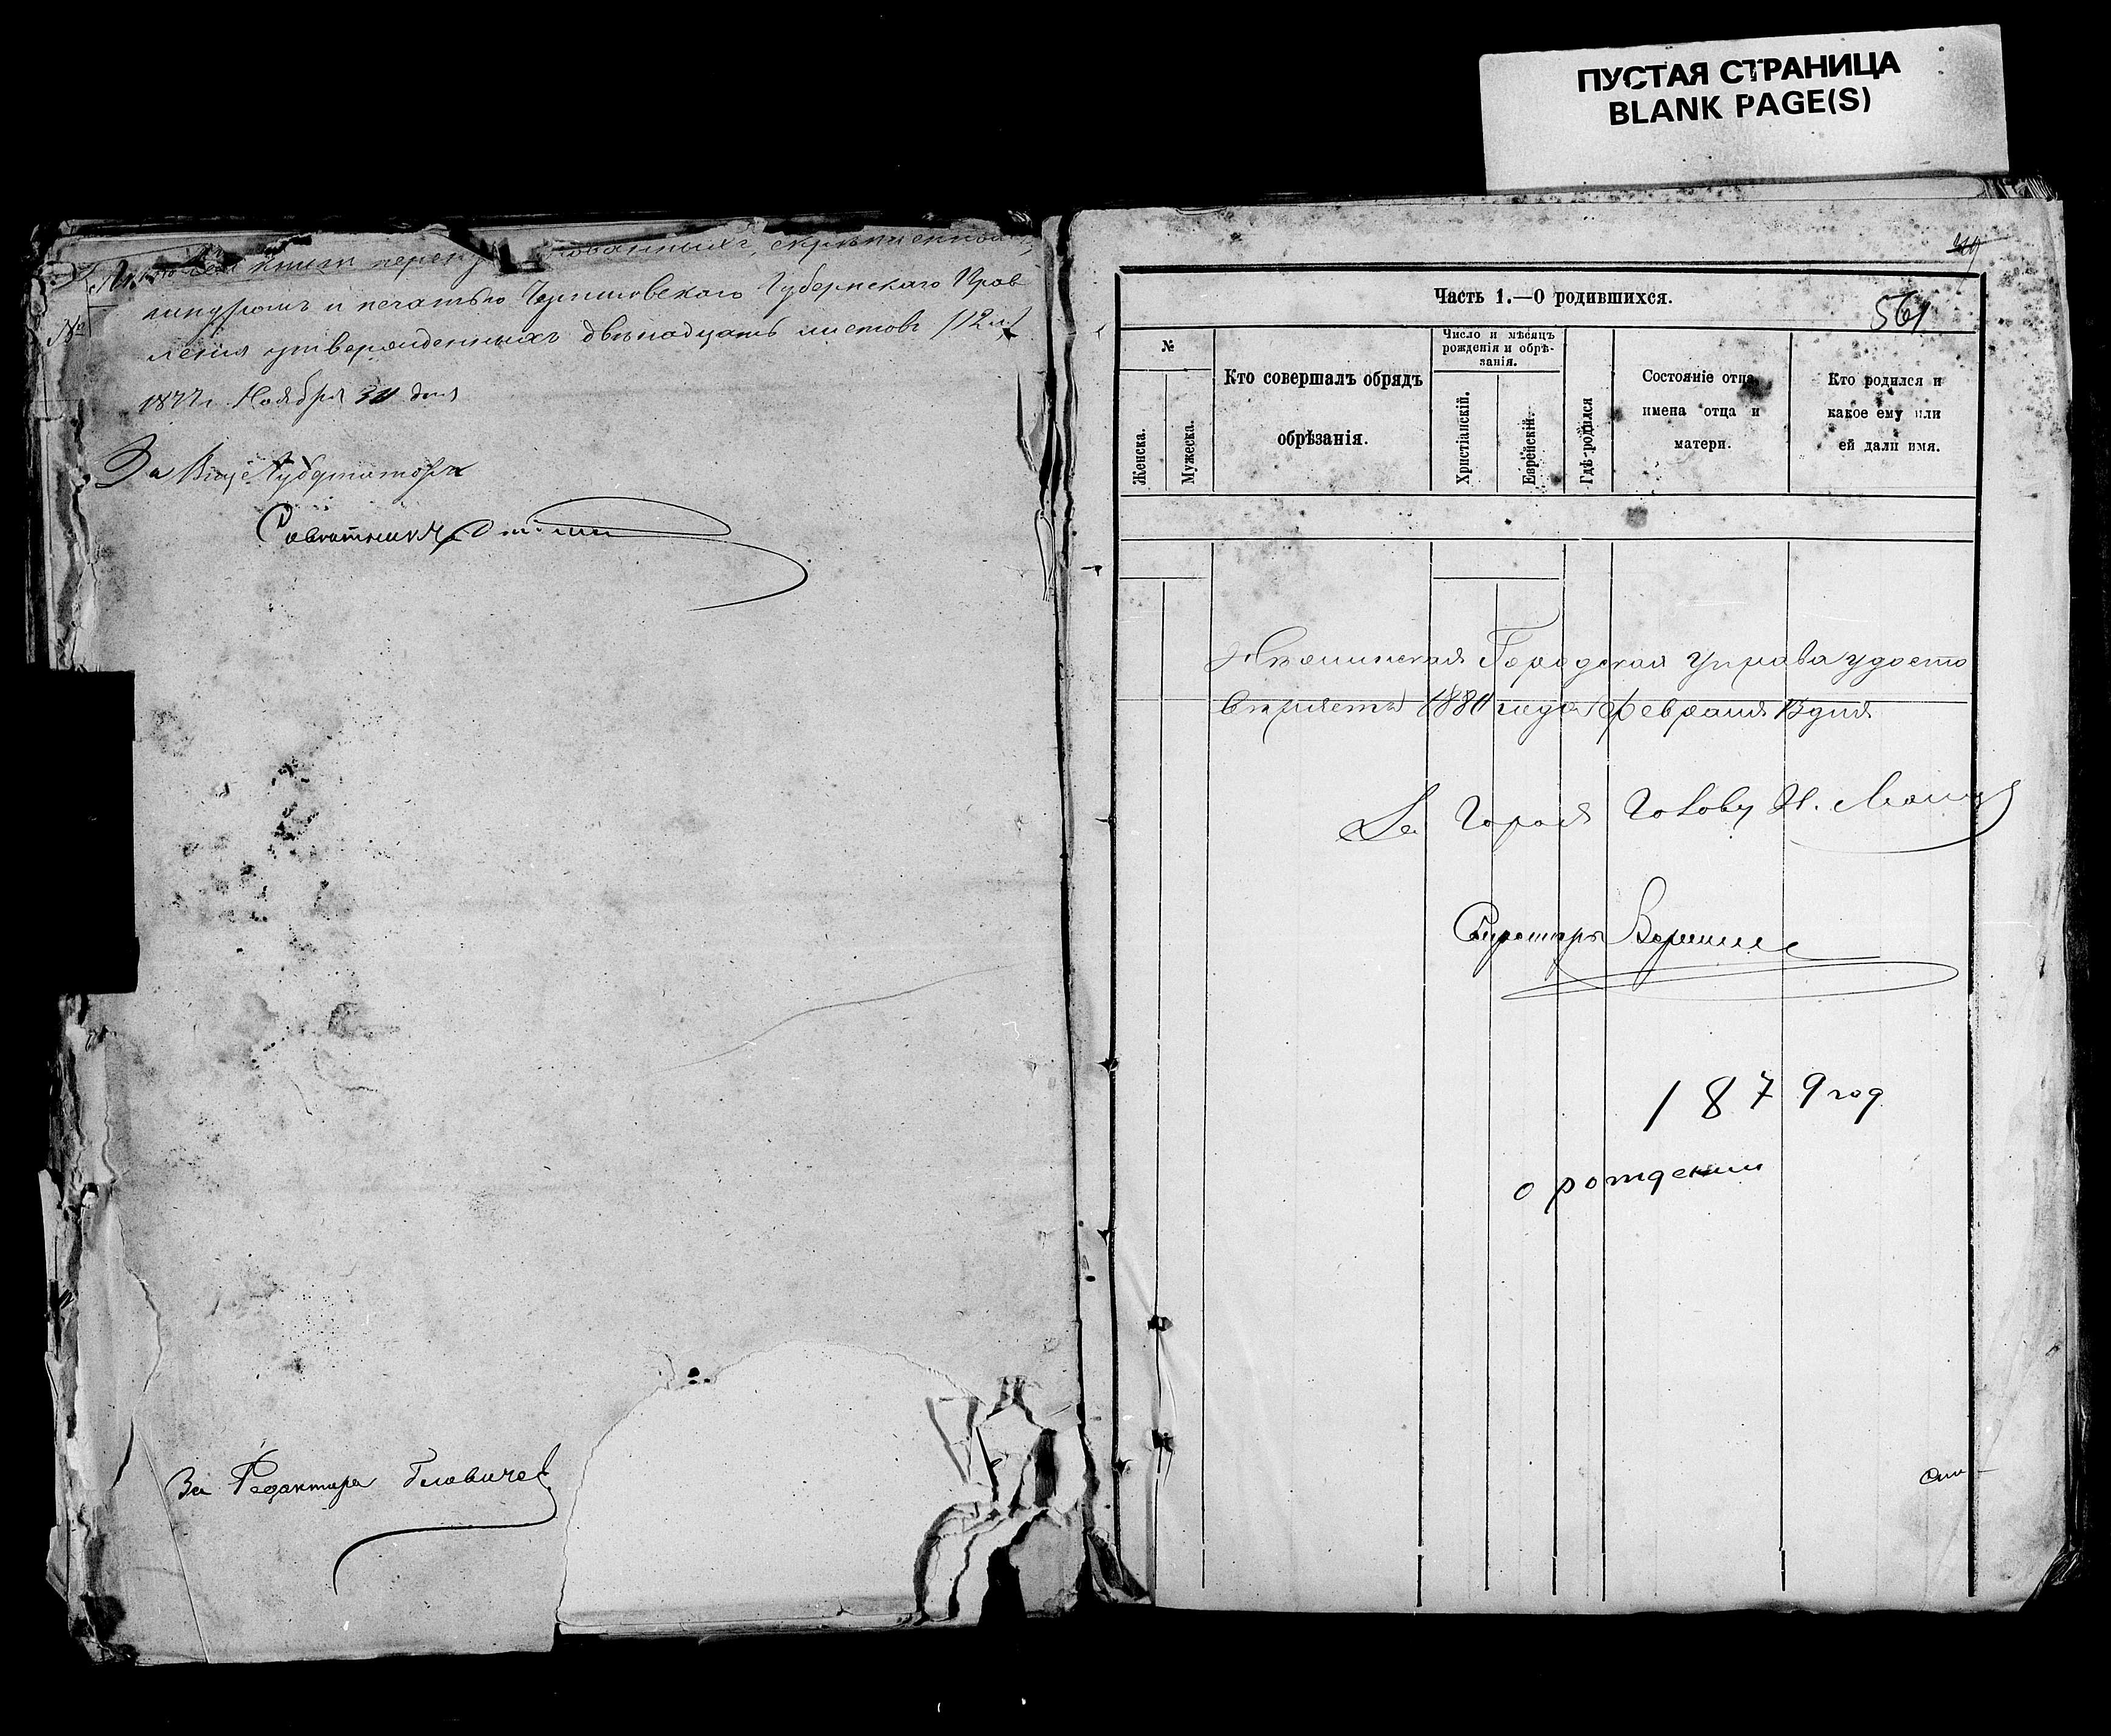 ПУСТАЯ СТРАНИЦА
BLANK PAGE(S)
книги перену ованныхъ, скрѣпленной
шнуромъ и печатью Черниговскаго Губернскаго Прав
ленія утвержденныхъ двѣнадцать листовъ /12 л/
1877 г. Ноября 30 дня
За Вице Губернатора
Совѣтникъ
За Редактора
№
561
Часть 1.—О родившихся.
№
Женска.
Мужеска.
Кто совершалъ обрядъ
обрѣзанія.
Число и мѣсяцъ
рожденія и обрѣ-
занія.
Христіанскій.
Еврейскій.
Гдѣ родился
Состояніе отца
имена отца и
матери.
Кто родился и
какое ему или
ей дали имя.
Городская Управа удосто
вѣряетъ 1880 года Февраля 13 дня
За Город Голову Н.
Секретарь
1879 год
о рождении